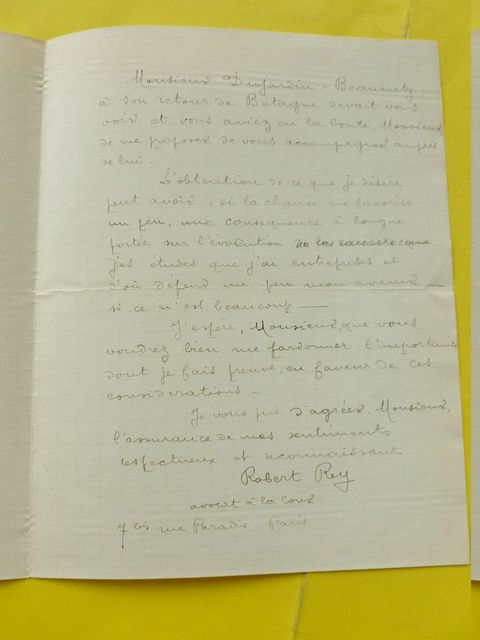 Monsieur Dujardin-Beaumetz,
à son retour de Bretagne devait vous
voir et vous aviez eu la bonté, Monsieur
de me proposer de vous accompagner auprès
de lui -
L'obtention de ce que je désire
peut avoir, si la chance me favorise
un peu, une conséquence à longue
portée sur l'évolution
des études que j'ai entreprises et
d'où défend un peu mon avenir
si ce n'est beaucoup —
J'espère, Monsieur, que vous
voudrez bien me pardonner l'importunité
dont je fais preuve, en faveur de ces
considerations -
Je vous prie d'agréer, Monsieur,
l'assurance de mes sentiments
respectueux et reconnaissant
Robert Rey
avocat à la Cour
7 bis rue Paradis Paris